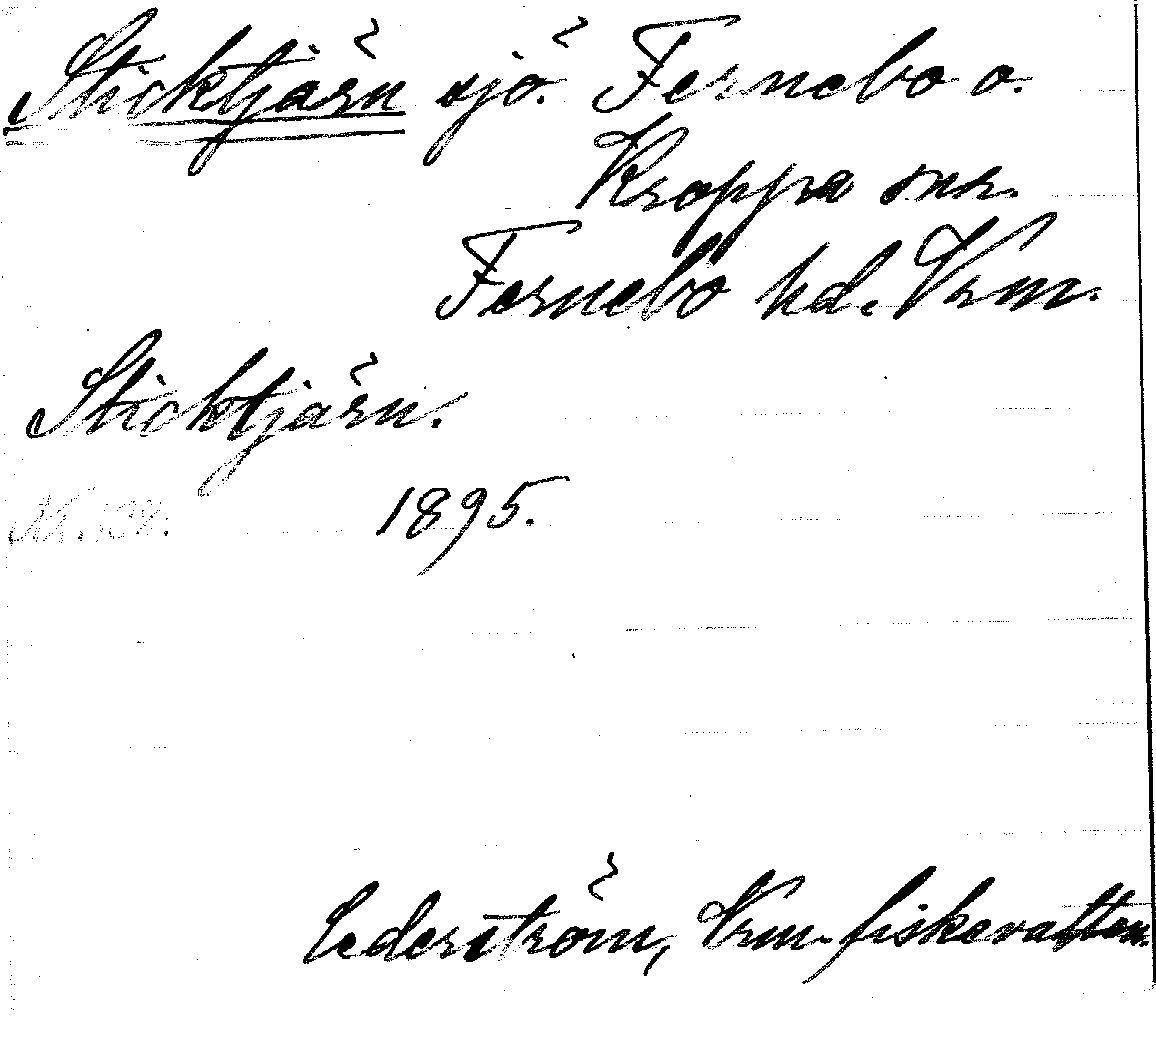 Sticktjärn sjö. Fernebo o.
Kroppa snr.
Fernebo hd. Vrm.
Sticktjärn.
1895.
Cederström, Vrm. fiskevatten.